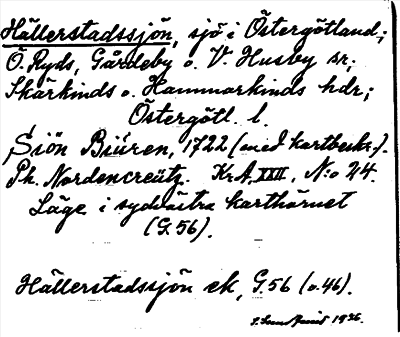 Hällerstadssjön, sjö i Östergötland;
Ö. Ryds, Gårdeby o. V. Husby sr;
Skärkinds o. Hammarkinds hdr;
Östergötl. l.
Siön Biüren, 1722 (med kartbeskr.).
Ph. Nordencreütz. Kr.A. XXII, N:o 24.
Läge i sydvästra karthörnet
(G. 56).
Hällerstadssjön ek, G. 56 (o. 46).
1936.